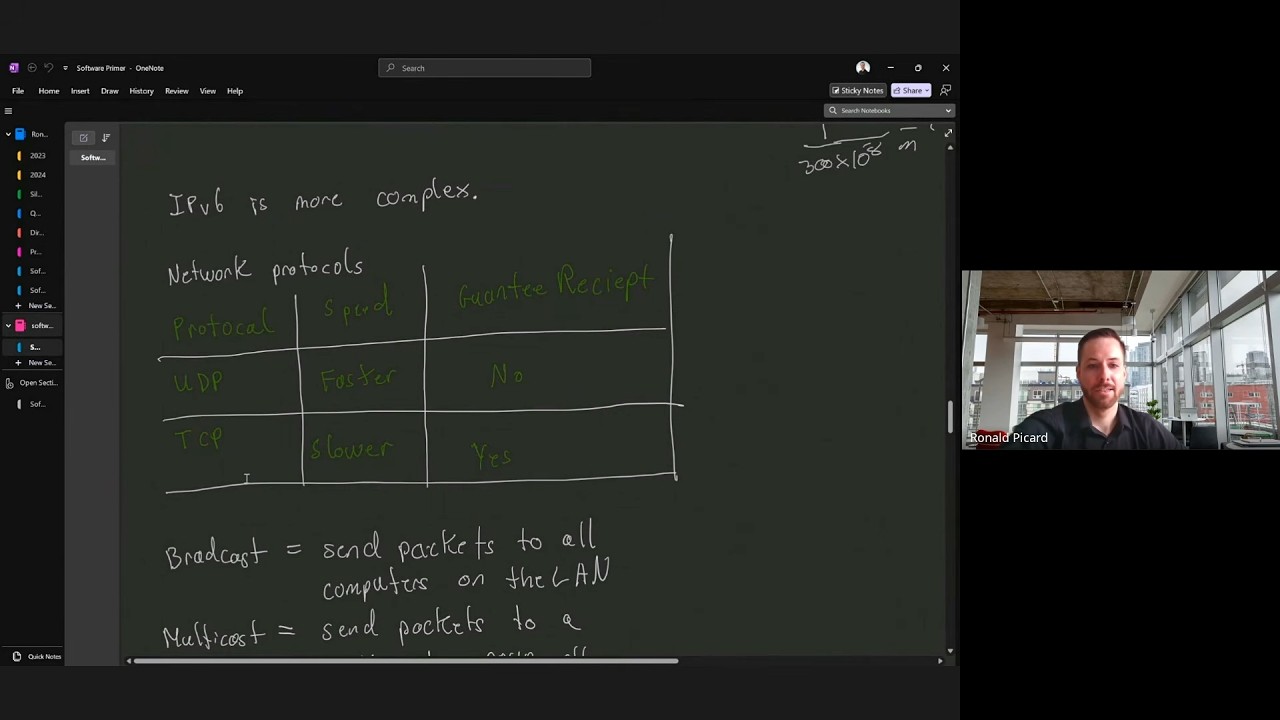 Software Primar - OneNote
Search
File Home Insert Draw History Review View Help
Sticky Notes
Share
Search Notebooks
Ron...
2023
2024
Sil...
Q...
Dir...
Pr...
Sof...
Sof...
New Se...
softw...
S...
New Se...
Open Secti...
Sof...
Quick Notes
Softw...
1
300x10^-8 m
IPv6 is more complex.
Network protocols
Protocal Speed Guantee Reciept
UDP Faster No
TCP Slower Yes
Bradcast = send packets to all
computers on the LAN
Multicast = send packets to a
Ronald Picard